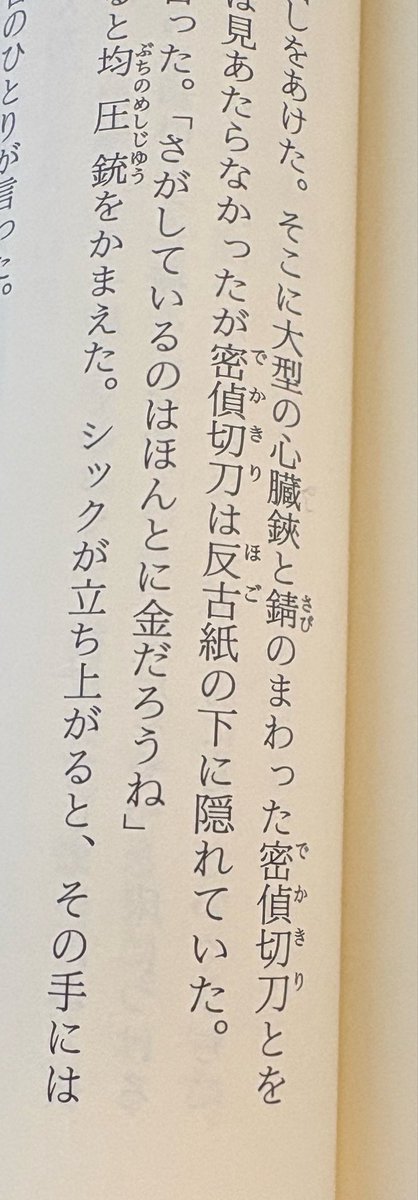 しをあけた。そこに大型の心臓鋏と錆さびのまわった密偵切刀でかきりとを
は見あたらなかったが密偵切刀でかきりは反古ほご紙の下に隠れていた。
った。「さがしているのはほんとに金だろうね」
ると均圧銃ぶちのめしじゆうをかまえた。シックが立ち上がると、その手には
のひとりが言った。